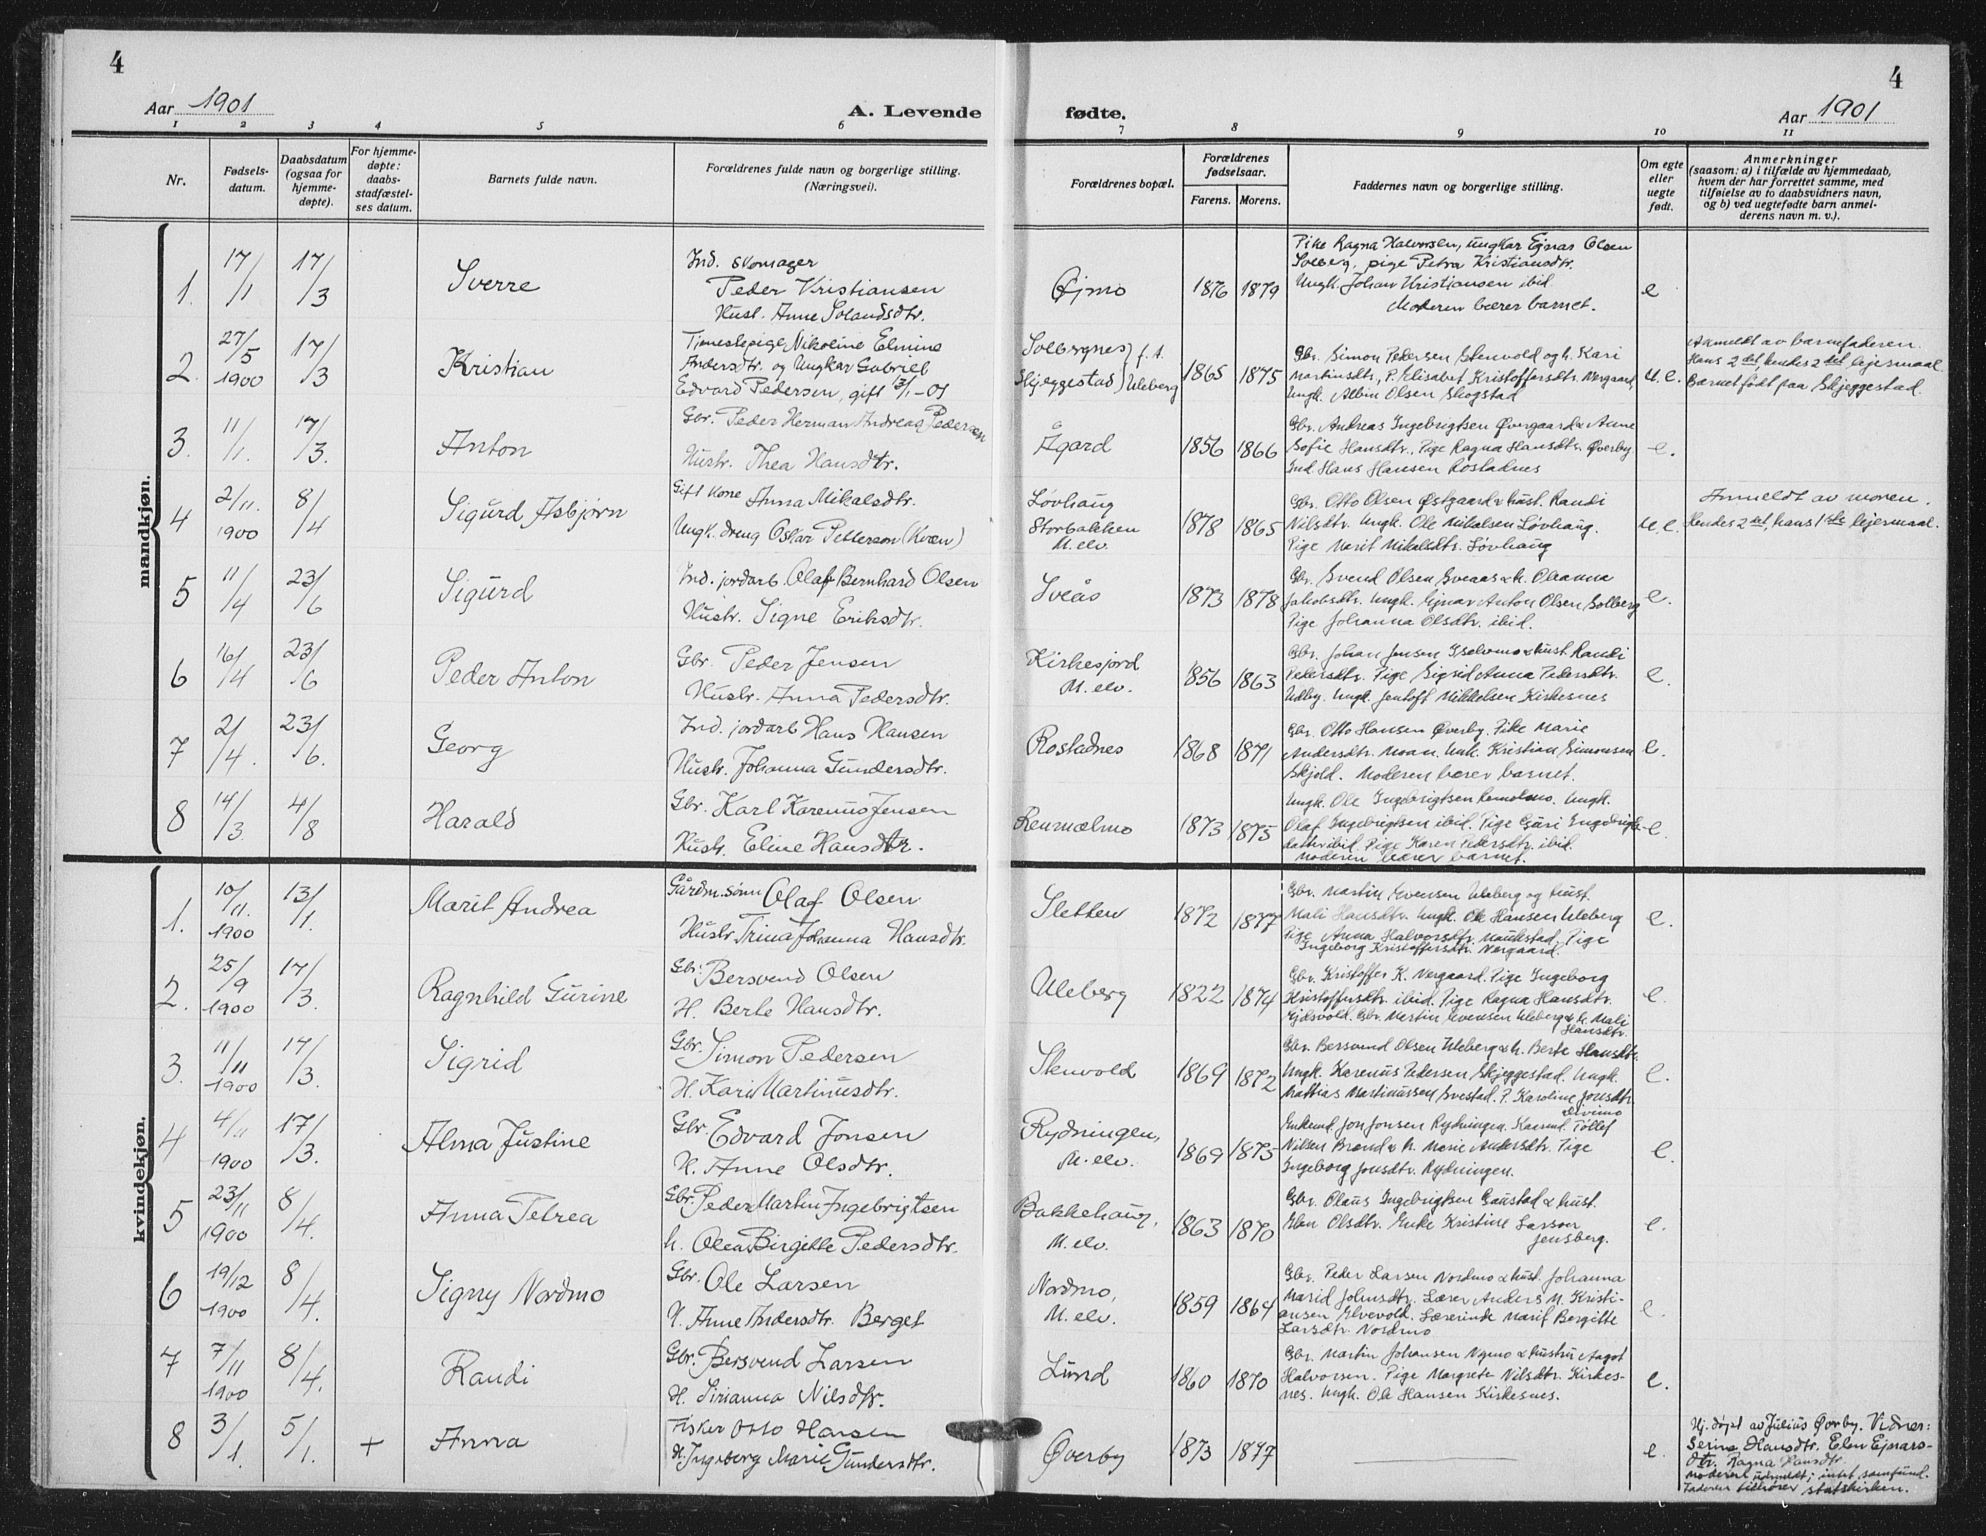 4
Aar 1901
A. Levende
1 2 3 4 5 6
Nr.
Fødsels-
datum.
Daabsdatum
(ogsaa for
hjemme-
døpte).
For hjemme-
døpte:
daabs-
stadfæstel-
ses datum.
Barnets fulde navn.
Forældrenes fulde navn og borgerlige stilling.
(Næringsvei).
mandkjøn.
1. 17/1 17/3 Sverre
Ind. skomager
Peder Kristiansen
Hust. Anne Solandsdtr.
2. 27/5 1900 17/3 Kristian
Tjenestepige Nikoline Elmine
Andersdtr. og Ungkar Gabriel
Edvard Pedersen, gift 13/1-01
3. 11/1. 17/3. Anton
Gbr. Peder Herman Andreas Pedersen
Hustr. Thea Hansdtr.
4 2/11. 1900 8/4 Sigurd Asbjørn
Gift kone Anna Mikalsdtr.
Ungk. dreng Oskar Petterson (Kvæn)
5 11/4 23/6 Sigurd
Ind. jordarb. Olaf Bernhard Olsen
Hustr. Signe Eriksdtr.
6 16/4 23/6 Peder Anton
Gbr. Peder Jensen
Hustr. Anna Pedersdtr.
7 2/4. 23/6. Georg
Ind. jordarb Hans Hansen
Hustr. Johanna Gundersdtr.
8 14/3 4/8 Harald
Gbr. Karl Karenus Jensen
Hustr. Eline Hansdtr.
kvindekjøn.
1. 10/11. 1900 13/1. Marit Andrea
Gårdm. sønn Olaf Olsen
Hustr. Trina Johanna Hansdtr.
2. 25/9 1900 17/3. Ragnhild Gurine
Gbr. Bersvend Olsen
H. Berte Hansdtr.
3. 11/11 1900 17/3. Sigrid
Gbr. Simon Pedersen
H. Kari Martinusdtr.
4 4/11 1900 17/3. Alma Justine
Gbr. Edvard Jonsen
H. Anne Olsdtr.
5 23/11 1900 8/4. Anna Petrea
Gbr. Peder Martin Ingebrigtsen
h. Olea Birgitte Pedersdtr.
6 19/12 1900 8/4. Signy Nordmo
Gbr. Ole Larsen
H. Anne Andersdtr. Berget
7 7/11 1900 8/4. Randi
Gbr. Bersvend Larsen
H. Sirianna Nilsdtr.
8 3/1. 5/1. + Anna
Fisker Otto Hansen
H. Ingeborg Marie Gundersdtr.
4
fødte.
Aar 1901
7 8 9 10 11
Forældrenes bopæl.
Forældrenes
fødselsaar.
Farens. Morens.
Faddernes navn og borgerlige stilling.
Om egte
eller
uegte
født.
Anmerkninger
(saasom: a) i tilfælde av hjemmedaab,
hvem der har forrettet samme, med
tilføielse av to daabsvidners navn,
og b) ved uegtefødte barn anmel-
derens navn m. v.).
Øjmo 1876 1879 e
Pike Ragna Halvorsen, ungkar Ejnar Olsen
Solberg, pige Petra Kristiansdtr.
Ungk. Johan Kristiansen ibid
Moderen bærer barnet.
Solbergnes } f. t.
Skjeggestad } Uleberg 1865 1875 u.e.
Gbr. Simon Pedersen Stenvold og h. Kari
Martinsdtr., P. Elisabet Kristoffersdtr. Vergaard
Ungk. Albin Olsen Skogstad
Anmeldt av barnefaderen.
Hans 2det, hendes 2det lejermaal.
Barnet født paa Skjeggestad.
Ågard 1856 1866 e.
Gbr. Andreas Ingebrigtsen Øvergaard & Anne
Sofie Hansdtr. Pige Ragna Hansdtr. Øverby
Ind. Hans Hansen Rostadnes
Løvhaug
Storbakken
M. elv. 1878 1865 u.e.
Gbr. Otto Olsen Østgaard & hust. Randi
Nilsdtr. Ungk. Ole Mikalsen Løvhaug.
Pige Marit Mikalsdtr. Løvhaug
Anmeldt av moren.
Hendes 2det, hans 1ste lejermaal.
Sveås 1873 1878 e.
Gbr. Svend Olsen Sveaas & h. Oleanna
Jakobsdtr. Ungk. Ejnar Anton Olsen Solberg
Pige Johanna Olsdtr. ibid.
Kirkesjord
M. elv. 1856 1863 e.
Gbr. Johan Jensen & hust. Randi
Pedersdtr. Pige Sigrid Anna Pedersdtr.
Udby. Ungk. Jentoft Mikkelsen Kirkesnes
Rostadnes 1868 1871 e.
Gbr. Otto Hansen Øverby. Pike Marie
Andersdtr. Moan. Ungk. Kristian Simonsen
Skjold. Moderen bærer barnet.
Renmælmo 1873 1875 e.
Ungk. Ole Ingebrigtsen. Ungk.
Olaf Ingebrigtsen ibid. Pige Guri Ingebrigts-
datter ibid. Pige Karen Pedersdtr. ibid.
Moderen bærer barnet.
Sletten 1872 1877 e.
Gbr. Martin Evensen Uleberg og hust.
Mali Hansdtr. Ungk. Ole Hansen Uleberg
Pige Anna Halvorsdtr. Maukstad, Pige
Ingeborg Kristoffersdtr. Vergaard.
Uleberg 1822 1874 e.
Gbr. Kristoffer K. Vergaard. Pige Ingeborg
Kristoffersdtr. ibid. Pige Ragna Hansdtr.
Ejdsvold. Gbr. Martin Evensen Uleberg & h. Mali
Hansdtr.
Stenvold 1869 1872 e.
Gbr. Bersvend Olsen Uleberg & h. Berte Hansdtr.
Ungk. Karenus Pedersen Skjeggestad. Ungk.
Mathias Martinussen Svestad. P. Karoline Jonsdtr.
Divimo
Rydningen,
M. elv. 1869 1875 e.
Enkemd. Jon Jonsen Rydningen. Tollef
Nilsen Brand & h. Marie Andersdtr. Pige
Ingeborg Jonsdtr. Rydningen.
Bakkehaug,
M. elv. 1863 1870 e.
Gbr. Olaus Ingebrigtsen Gaustad & hust.
Elen Olsdtr. Enke Kristine Larsen
Jensberg.
Nordmo,
M. elv. 1859 1864 e.
Gbr. Peder Larsen Nordmo & hust. Johanna
Marid Johnsdtr. Lærer Anders M. Kristi-
ansen Elvevold. Lærerinde Marit Bergitte
Larsdtr. Nordmo
Lund 1860 1870 e.
Gbr. Martin Johansen Nymo & hustru Aagot
Halvorsen. Pige Margrete Nilsdtr. Kirkes-
nes. Ungk. Ole Hansen Kirkesnes.
Øverby 1873 1877 e.
Hj. døpt av Julius Øvrby. Vidner:
Serine Hansdtr. Elen Ejnars-
dtr. Ragna Hansdtr.
Moderen udmeldt; intet samfund.
Faderen tilhører statskirken.